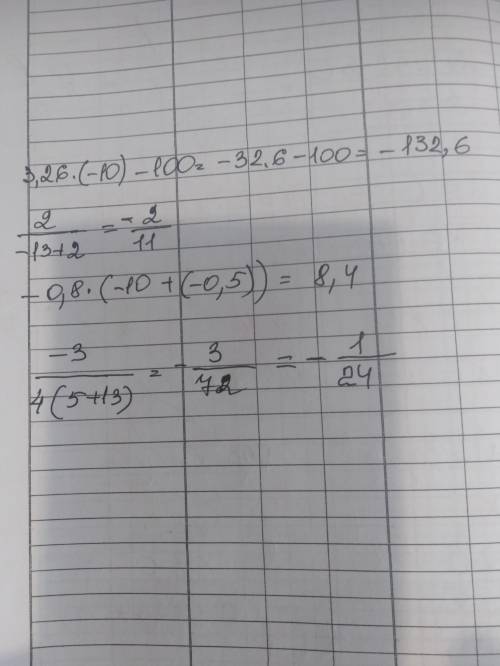 3,26·(-10) - 100 = -32.6 - 100 = -132,6
2/(-13+2) = -2/11
-0,8·(-10 + (-0,5)) = 8,4
-3/(4(5+13)) = -3/72 = -1/24